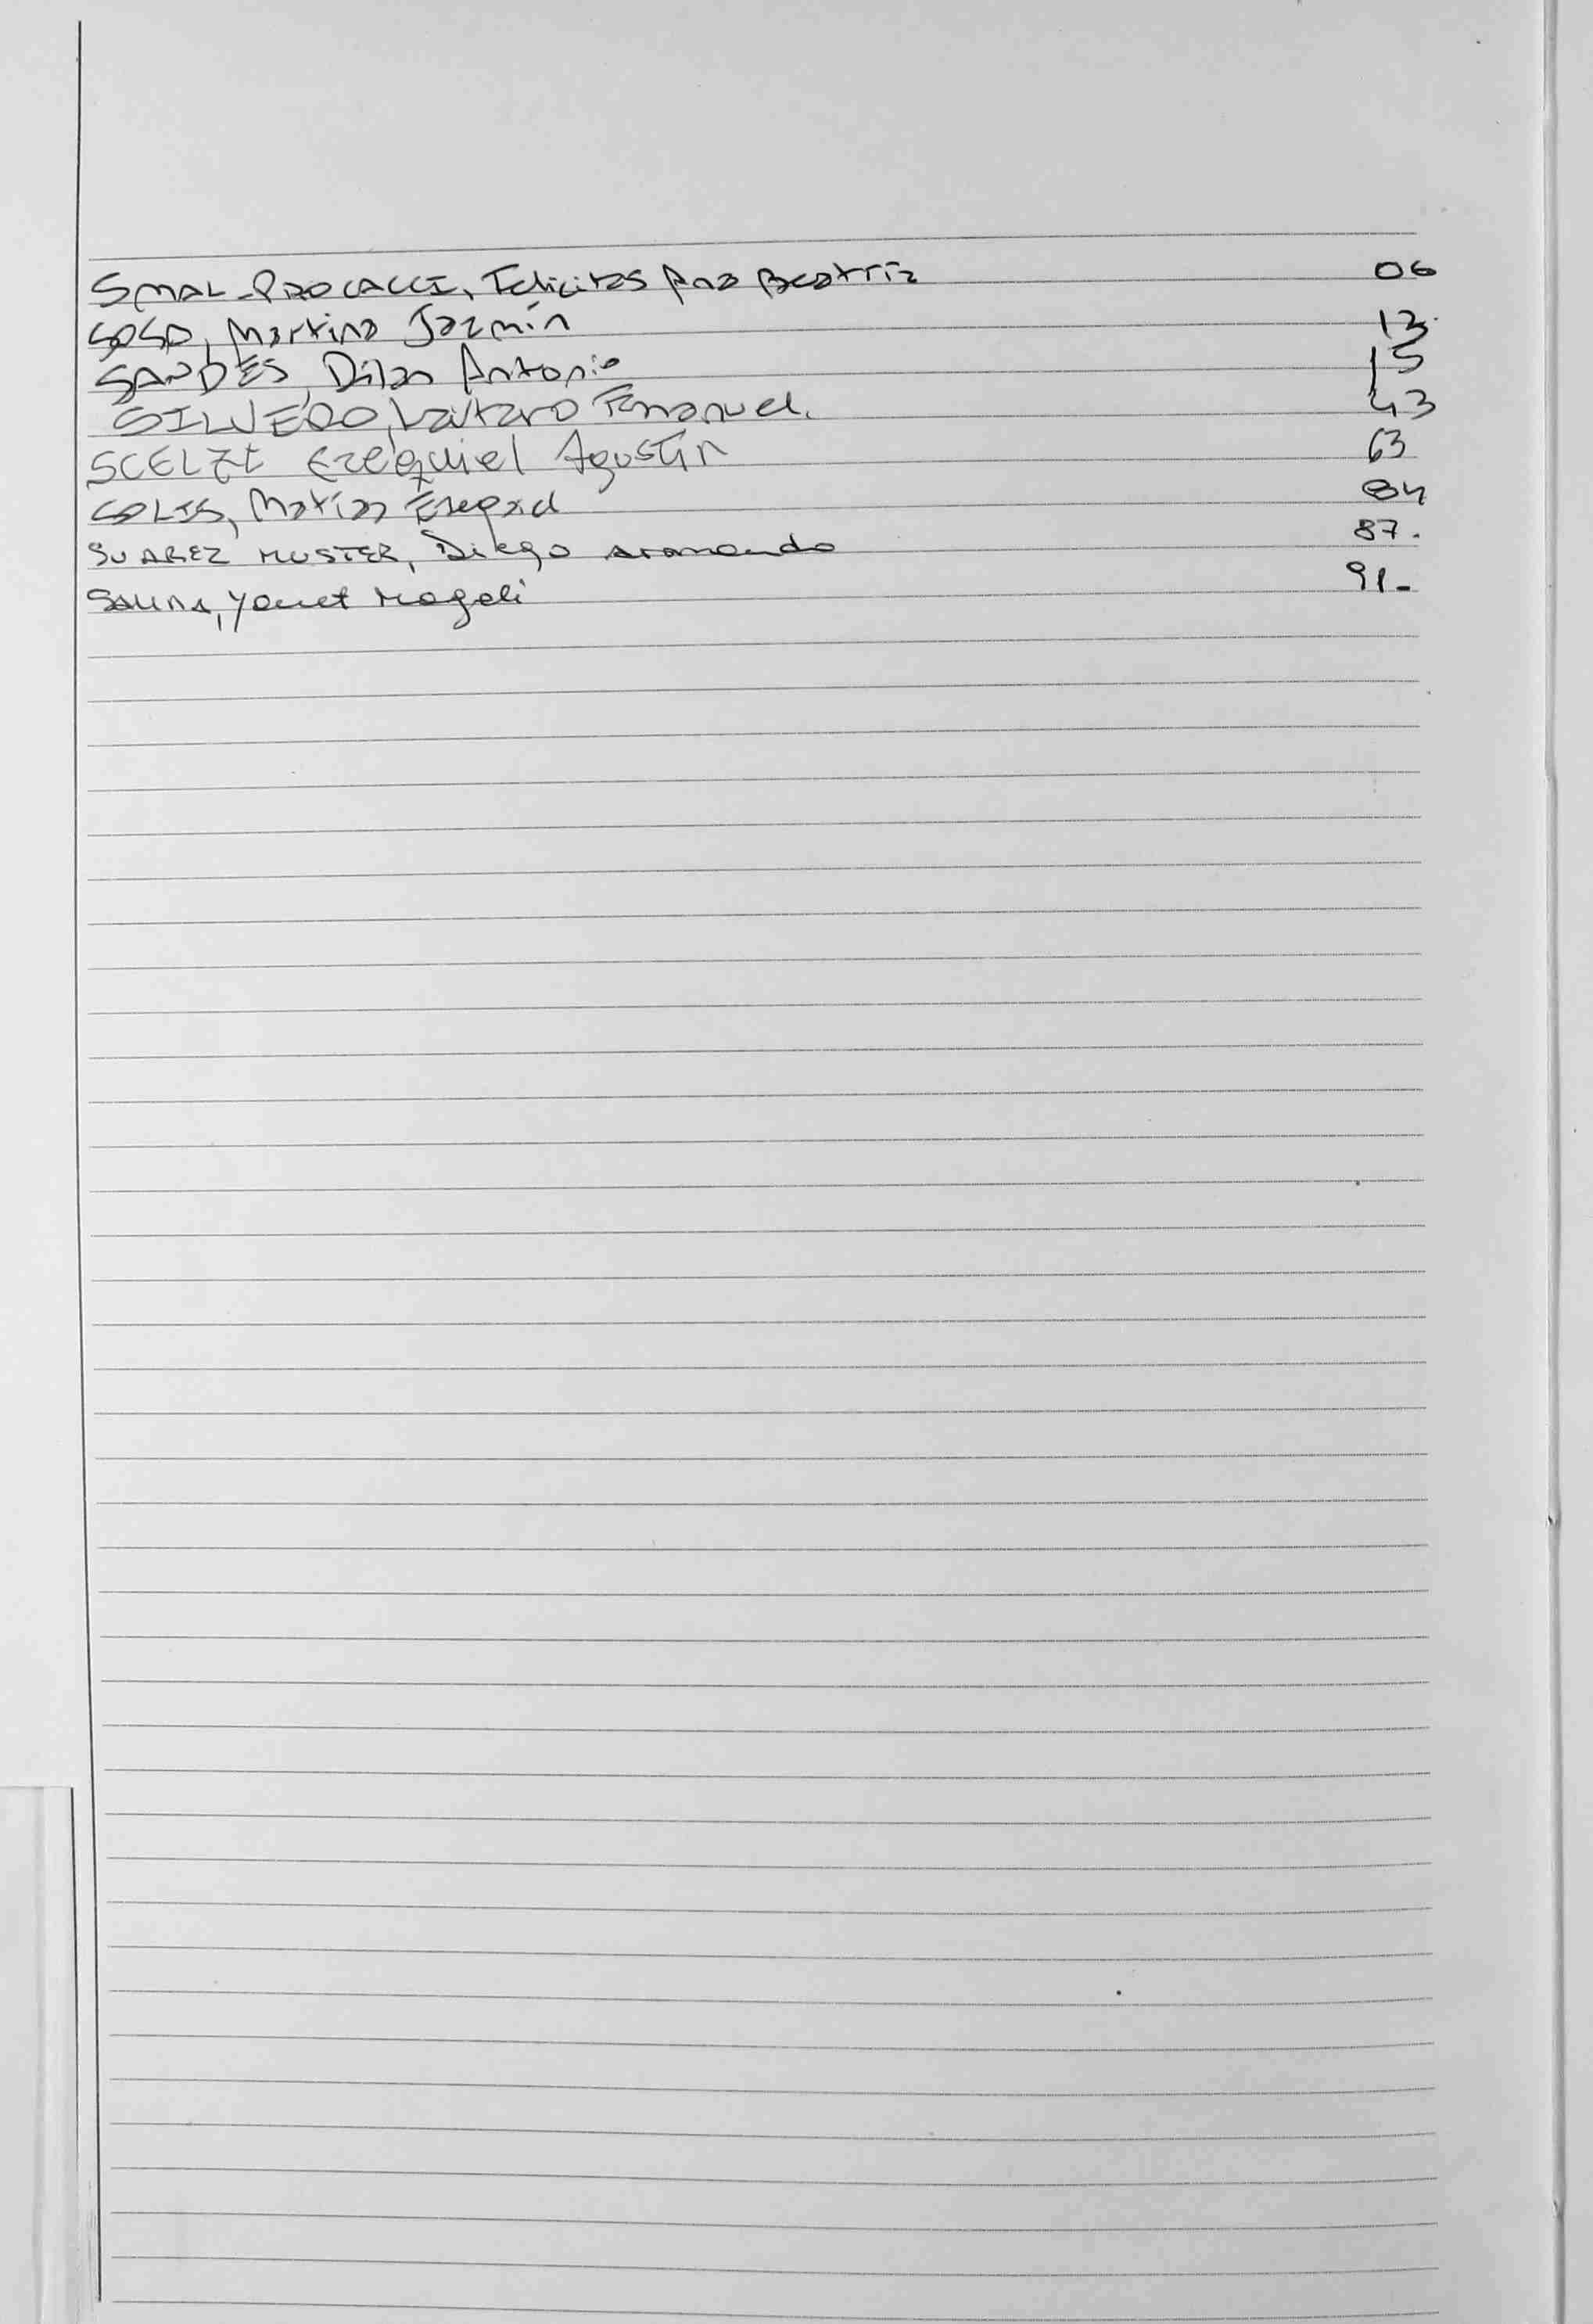 SMAL-PROCACCI, Felicitas Ana Beatriz 06
SOSA, Martina Jazmín 13.
SANDES, Dilan Antonio 15
SILVERO, Lautaro Emanuel. 43
SCELZI Ezequiel Agustín 63
SOLIS, Matías 84
SUAREZ MUSTER, Diego Armando 87.
SALINA, Yanet Magali 91-